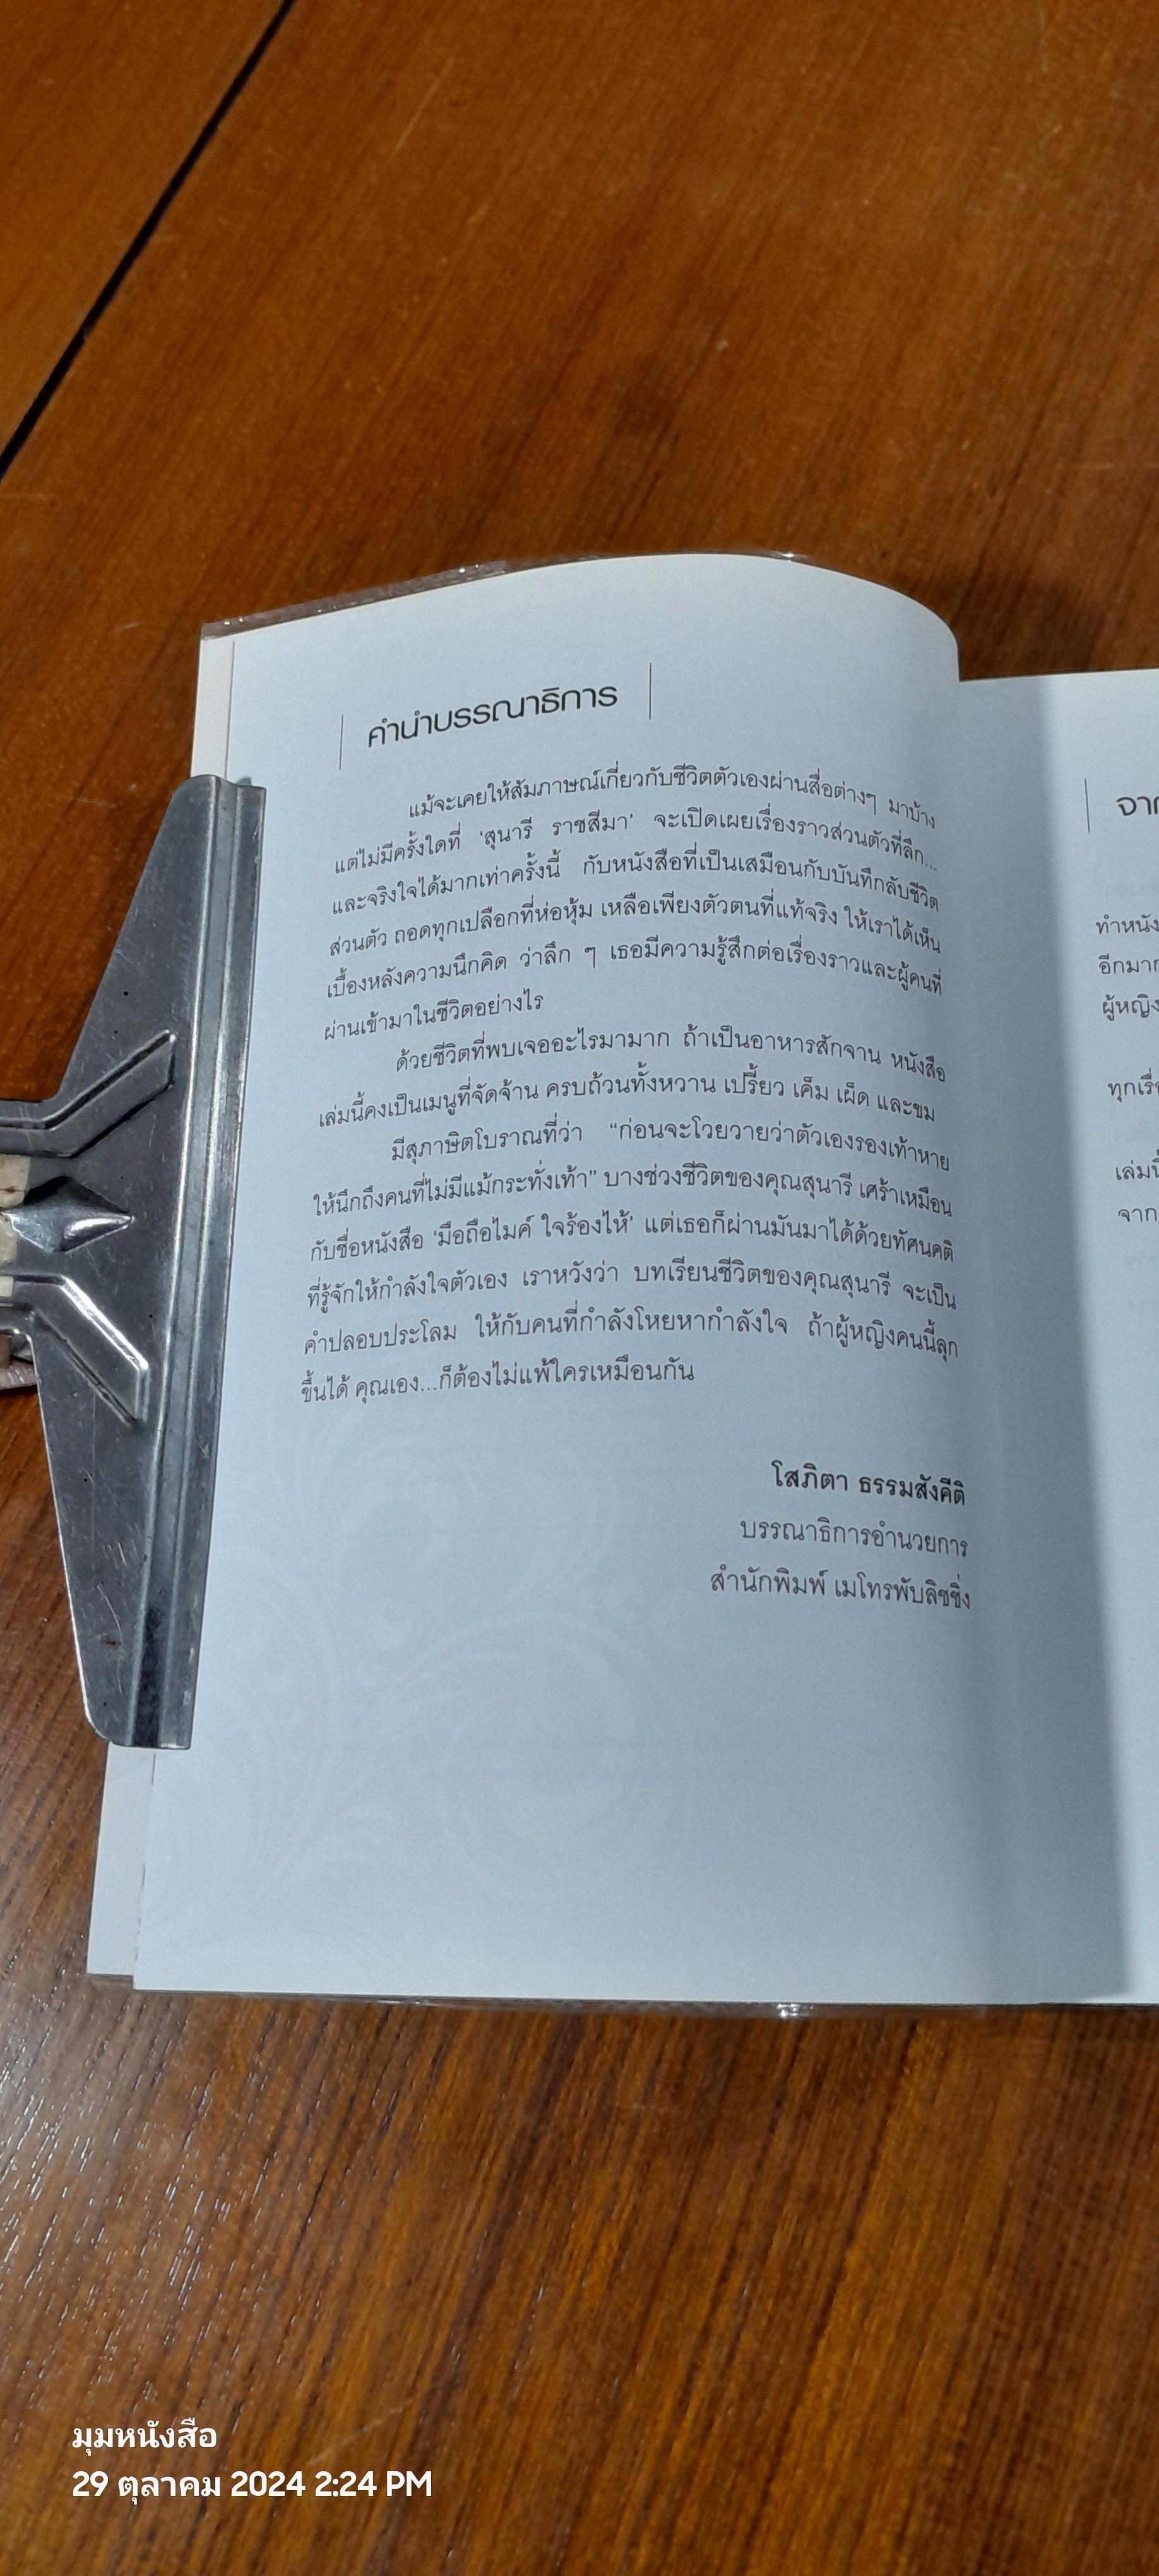 คำนำบรรณาธิการ
แม้จะเคยให้สัมภาษณ์เกี่ยวกับชีวิตตัวเองผ่านสื่อต่างๆ มาบ้าง
แต่ไม่มีครั้งใดที่ ‘สุนารี ราชสีมา’ จะเปิดเผยเรื่องราวส่วนตัวที่ลึก...
และจริงใจได้มากเท่าครั้งนี้ กับหนังสือที่เป็นเสมือนกับบันทึกลับชีวิต
ส่วนตัว ถอดทุกเปลือกที่ห่อหุ้ม เหลือเพียงตัวตนที่แท้จริง ให้เราได้เห็น
เบื้องหลังความนึกคิด ว่าลึก ๆ เธอมีความรู้สึกต่อเรื่องราวและผู้คนที่
ผ่านเข้ามาในชีวิตอย่างไร
ด้วยชีวิตที่พบเจออะไรมามาก ถ้าเป็นอาหารสักจาน หนังสือ
เล่มนี้คงเป็นเมนูที่จัดจ้าน ครบถ้วนทั้งหวาน เปรี้ยว เค็ม เผ็ด และขม
มีสุภาษิตโบราณที่ว่า “ก่อนจะโวยวายว่าตัวเองรองเท้าหาย
ให้นึกถึงคนที่ไม่มีแม้กระทั่งเท้า” บางช่วงชีวิตของคุณสุนารี เศร้าเหมือน
กับชื่อหนังสือ ‘มือถือไมค์ ใจร้องไห้’ แต่เธอก็ผ่านมันมาได้ด้วยทัศนคติ
ที่รู้จักให้กำลังใจตัวเอง เราหวังว่า บทเรียนชีวิตของคุณสุนารี จะเป็น
คำปลอบประโลม ให้กับคนที่กำลังโหยหากำลังใจ ถ้าผู้หญิงคนนี้ลุก
ขึ้นได้ คุณเอง...ก็ต้องไม่แพ้ใครเหมือนกัน
โสภิตา ธรรมสังคีติ
บรรณาธิการอำนวยการ
สำนักพิมพ์ เมโทรพับลิชชิ่ง
ทำหนัง
อีกมาก
ผู้หญิง
ทุกเรื่อ
เล่มนี้
จาก
มุมหนังสือ
29 ตุลาคม 2024 2:24 PM